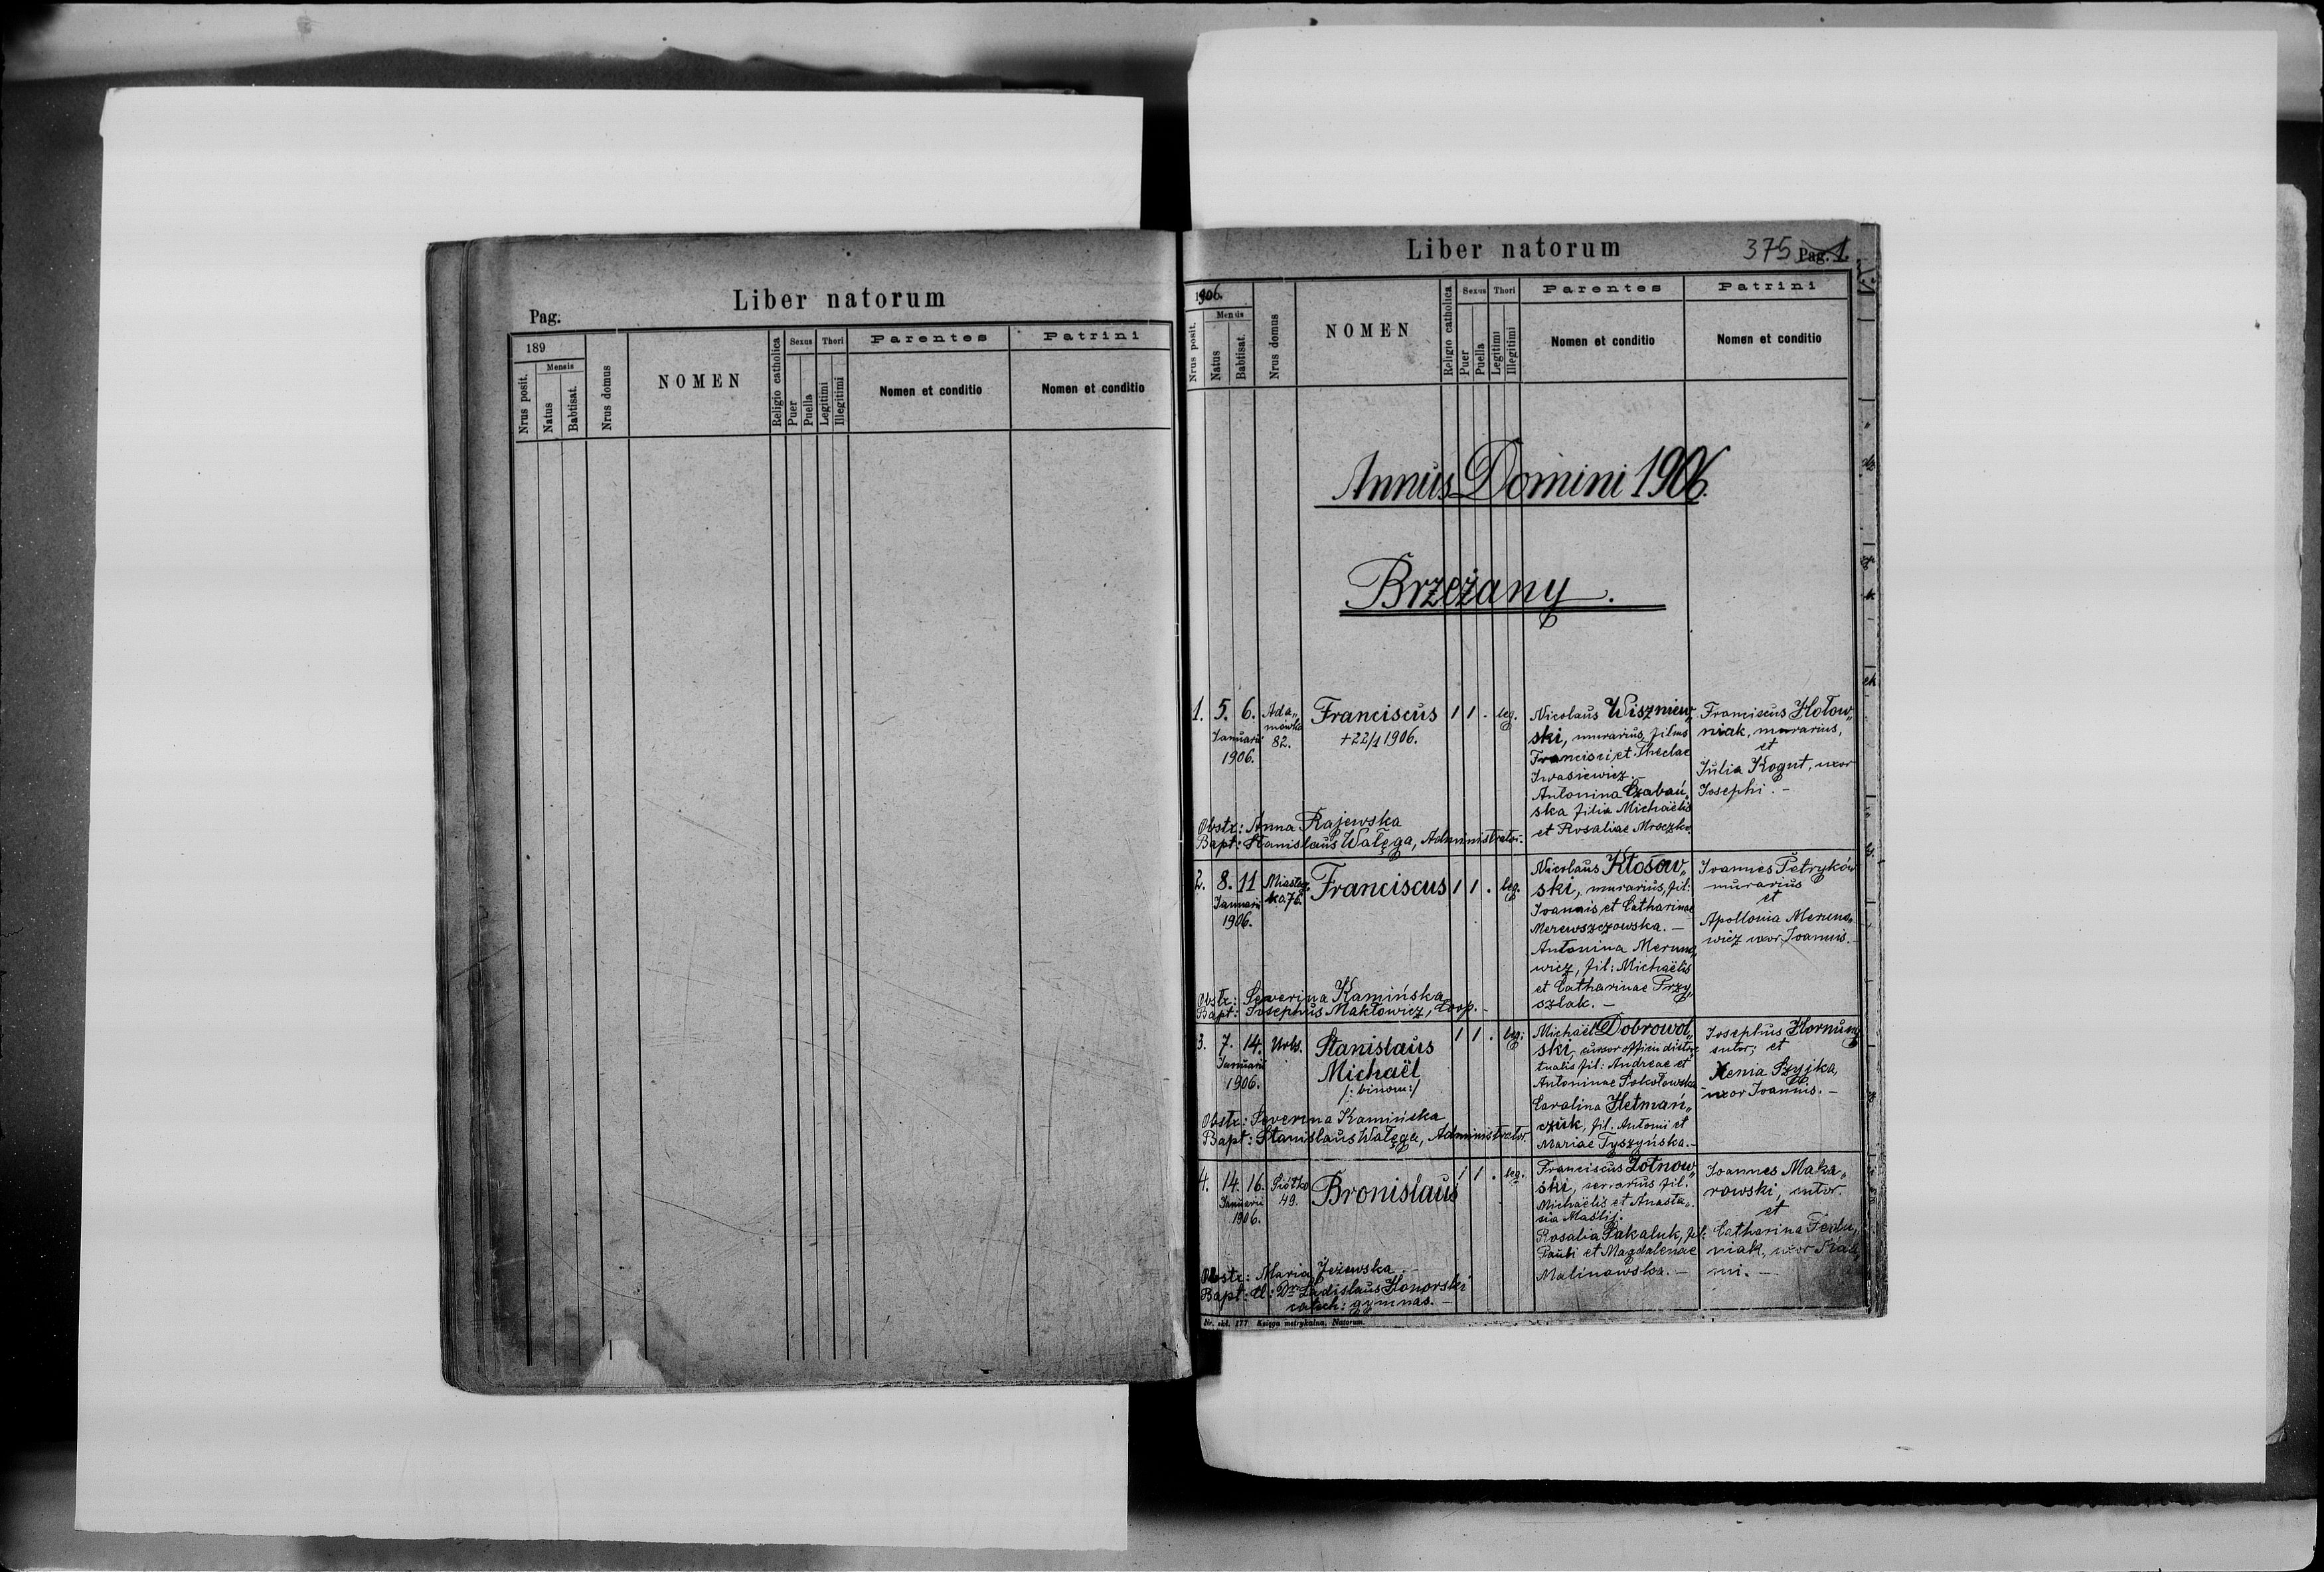 Liber natorum
Pag.
189
Nrus posit.
Mensis
Natus
Babtisat.
Nrus domus
NOMEN
Religio catholica
Sexus
Puer
Puella
Thori
Legitimi
Illegitimi
Parentes
Nomen et conditio
Patrini
Nomen et conditio
Liber natorum
375 Pag. 1
1906.
Nrus posit.
Mensis
Natus
Babtisat.
Nrus domus
NOMEN
Religio catholica
Sexus
Puer
Puella
Thori
Legitimi
Illegitimi
Parentes
Nomen et conditio
Patrini
Nomen et conditio
Annus Domini 1906.
Brzeżany.
1. 5. 6.
Januarii
1906.
Ada„
mówka
82.
Franciscus
+22/1 1906.
1 1 . leg.
Nicolaus Wiszniew„
ski, murarius, filius
Francisci et Theclae
Iwasiewicz.–
Antonina Czabań„
ska filia Michaëlis
et Rosaliae Mroczko
Franciscus Hołow„
niak, murarius,
et
Julia Kogut, uxor
Josephi.–
Obstr: Anna Rajewska
Bapt: Stanislaus Wałęga, Administrator.
2. 8. 11
Januarii
1906.
Miastecz„
ko 76.
Franciscus
1 1 . leg.
Nicolaus Kłosow„
ski, murarius, fil:
Joannis et Catharinae
Merewszczowska.–
Antonina Meruno„
wicz, fil: Michaëlis
et Catharinae Przy„
szlak.–
Joannes Petryków
murarius
et
Apollonia Meruno„
wicz uxor Joannis.–
Obstr: Severina Kamińska
Bapt: Josephus Makłowicz, Coop.–
3. 7. 14.
Januarii
1906.
Urbs.
Stanislaus
Michaël
/: binom:/
1 1 . leg:
Michaël Dobrowol„
ski, cursor officii distric
tualis fil: Andreae et
Antoninae Sokołowska
Carolina Hetmań„
czuk, fil. Antonii et
Mariae Tyszyńska.–
Josephus Hornung
sutor; et
Xenia Szyjka,
uxor Joannis.–
Obstr: Severina Kamińska
Bapt: Stanislaus Wałęga, Administrator
4. 14. 16.
Januarii
1906.
49.
Bronislaus
1 1 . leg.
Franciscus Żółnow„
ski, serrarius fil.
Michaëlis et Anasta„
sia Maślij.
Rosalia Pakaluk, fil:
Pauli et Magdalenae
Malinowska.–
Joannes Maka„
rowski, sutor.
et
Catharina
niak, uxor
ni.–
Obstr: Maria Jeżowska
Bapt: Cl: Dr Ladislaus Honorski
catech: gymnas.–
Nr. skł. 177 Księga metrykalna. Natorum.